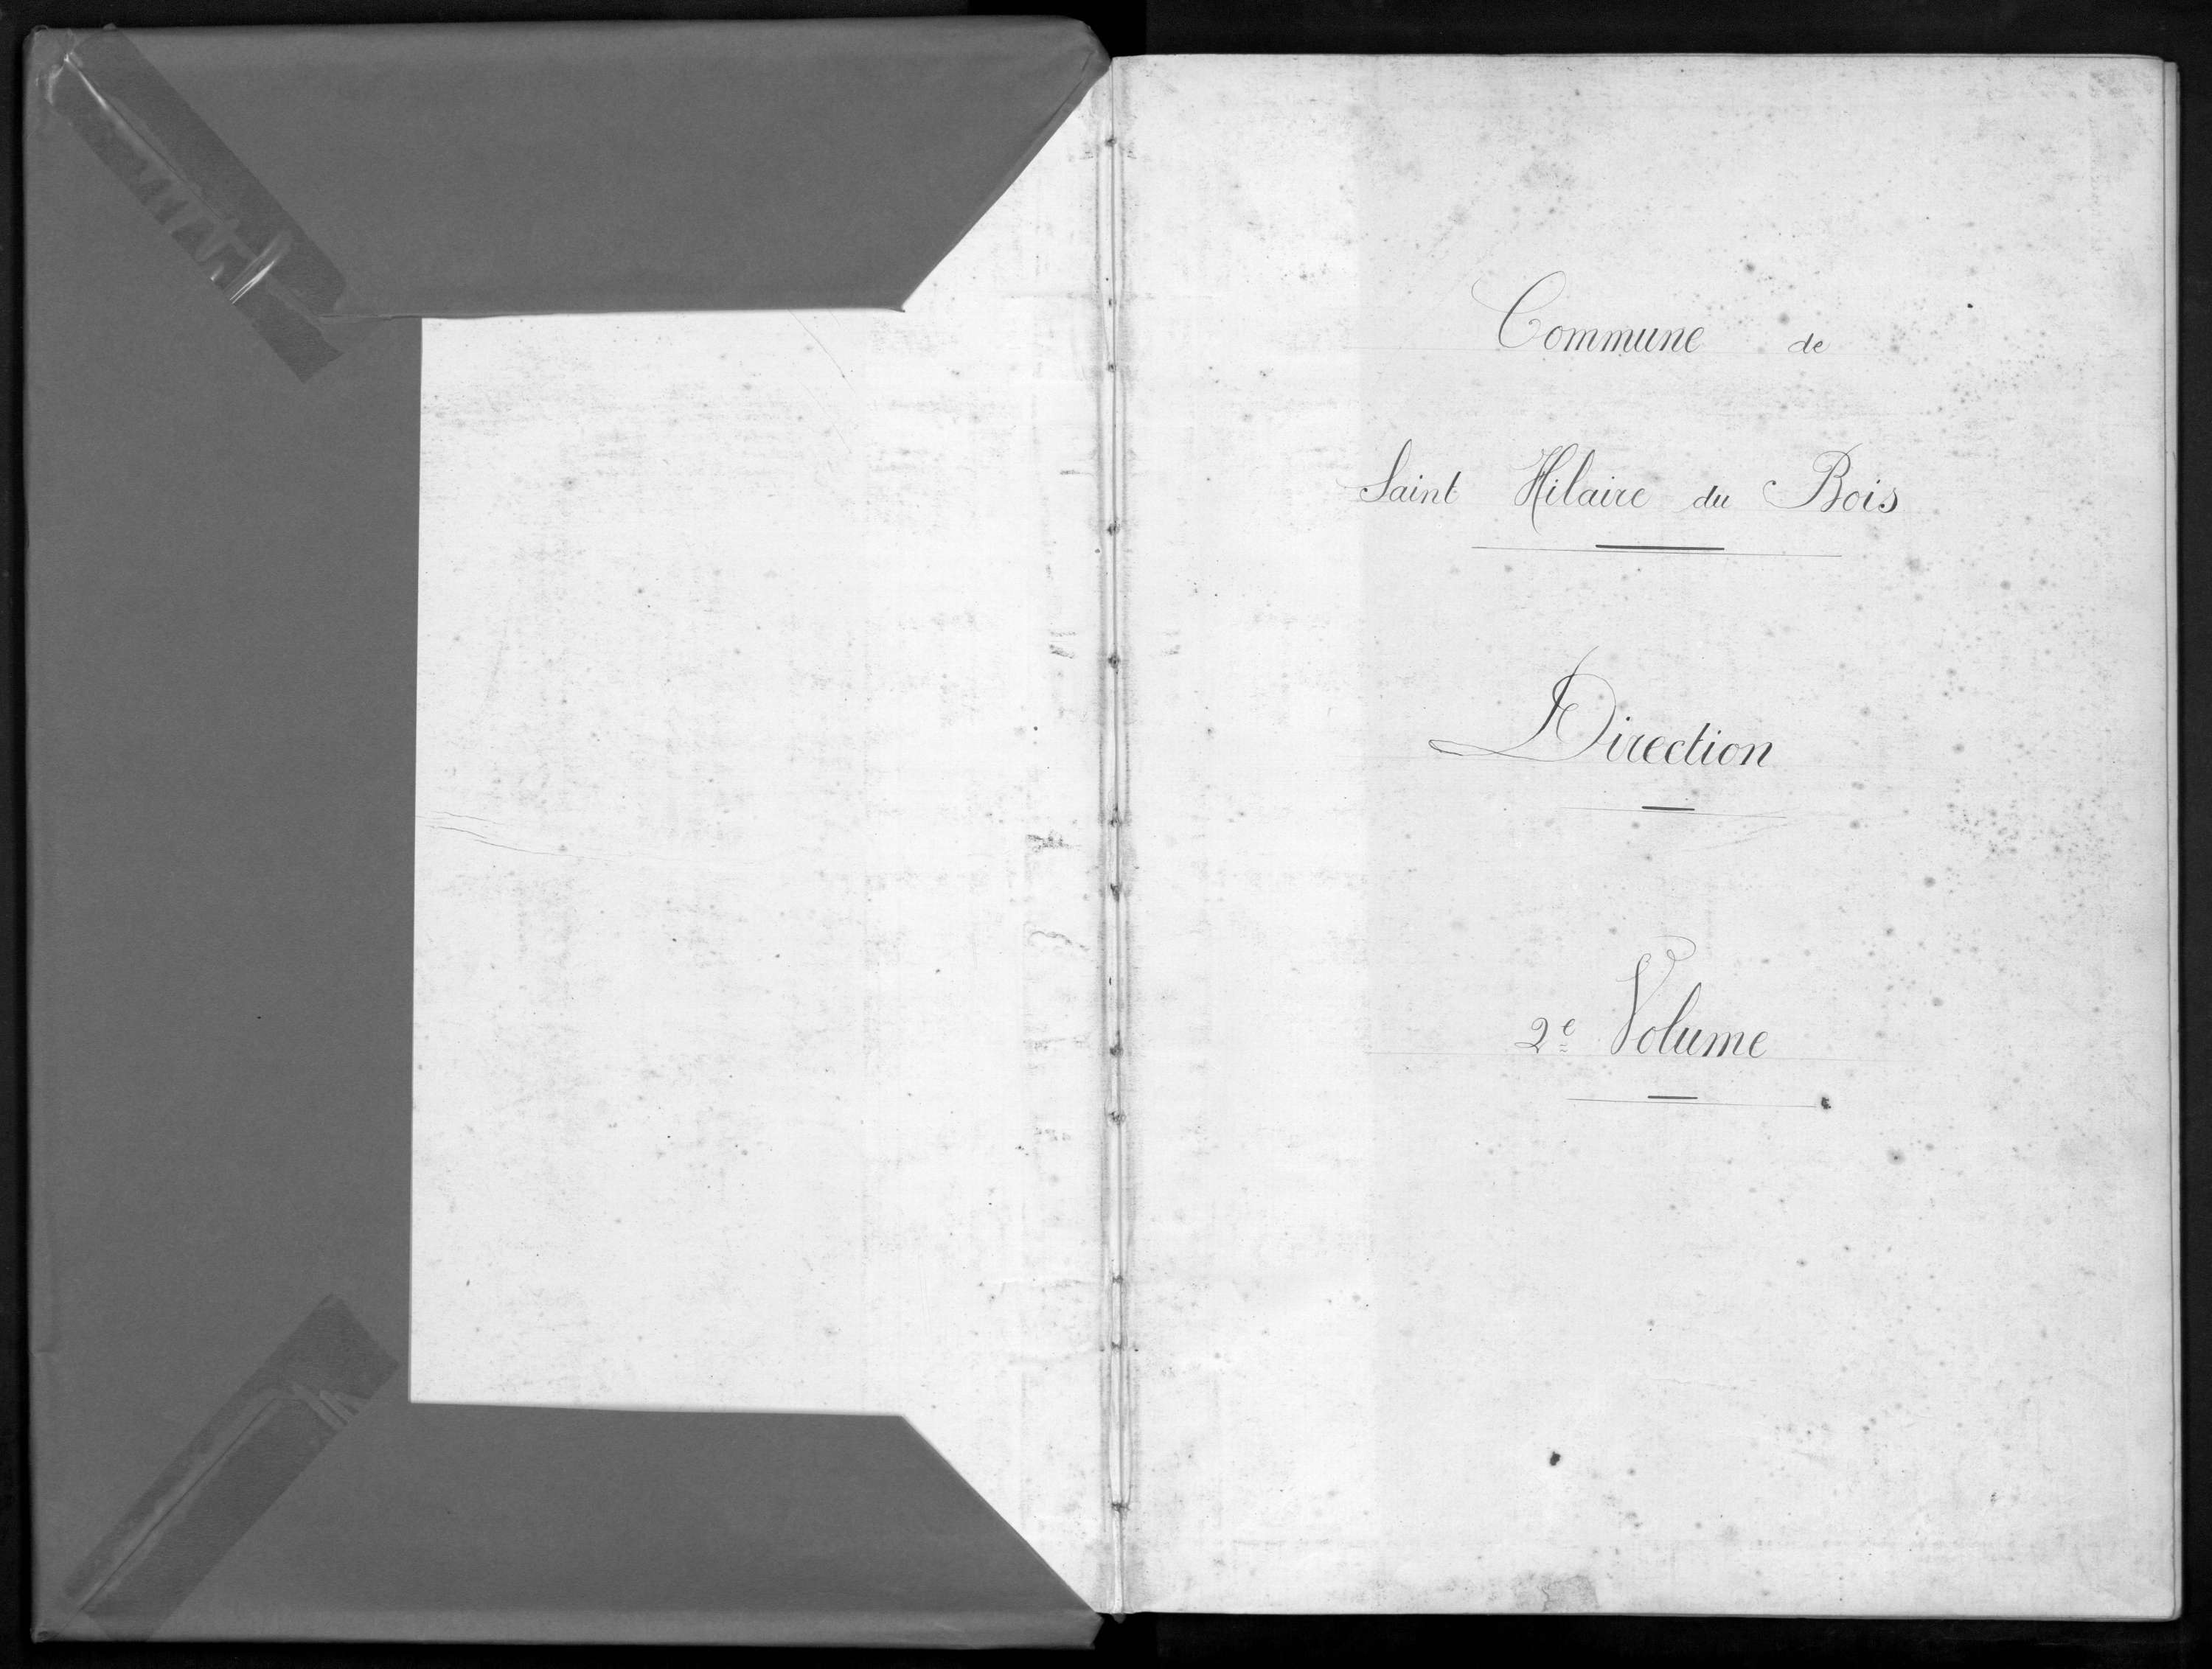 Commune de
Saint Hilaire du Bois
Direction
2e Volume